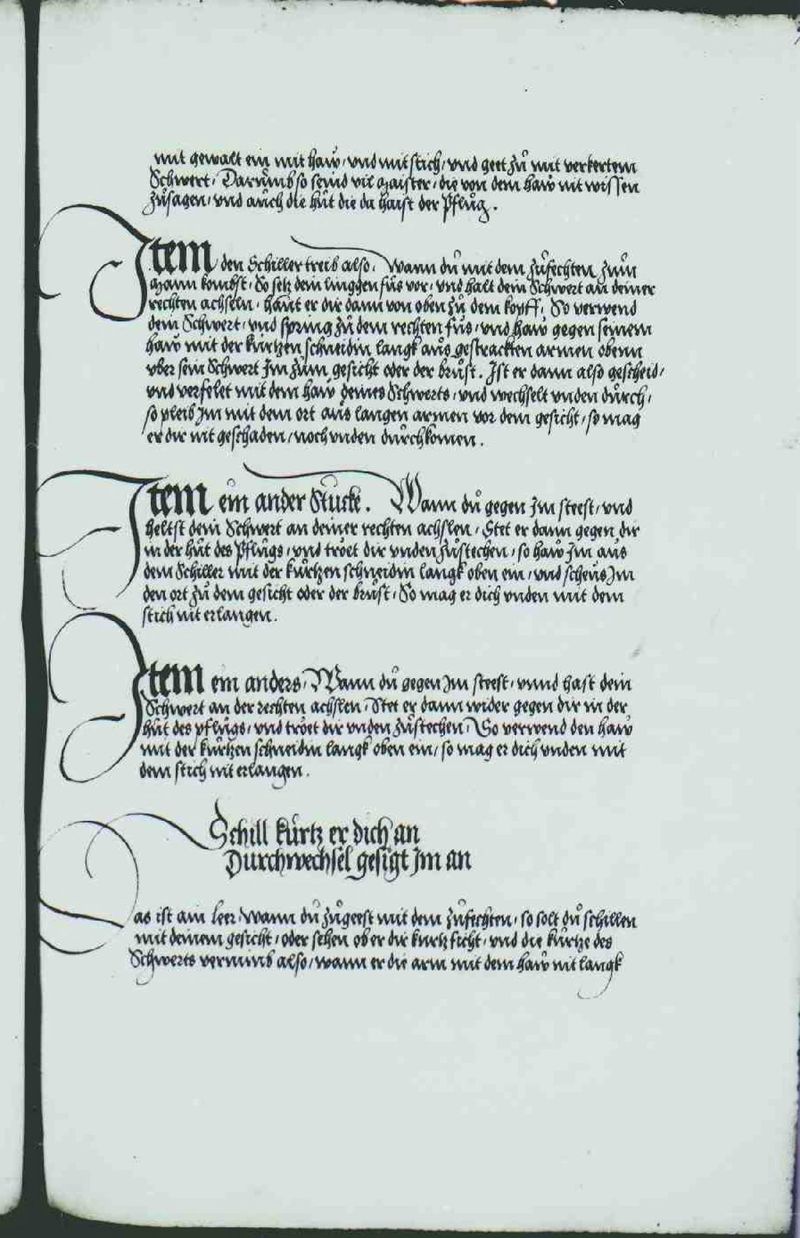 mit gewalt ein mit haw, vnd mit stich, vnd geet zů mit verkertem
Schwert, Darumb so seind vil maister, die von dem haw nit wissen
zůsagen, vnd auch die hůt die da haist der Pflůg.
Item den Schiller treib also, Wann dů mit dem zůfechten zům
Mann kombst, So setz dein linggen fůs vor, vnd halt dein Schwert an deiner
rechten achseln, haut er dir dann von oben zů dem kopff, So verwend
dein Schwert, vnd spring zů dem rechten fůs, vnd haw gegen seinem
haw mit der kůrtzen schneidin langk aůs gestrackten armen obenn
vber sein Schwert Im zům gesicht oder der brůst. Ist er dann also gescheid,
vnd verfelet mit dem haw deines Schwerts, vnd wechselt vnden důrch,
so pleib Im mit dem ort aůs langen armen vor dem gesicht, so mag
er dir nit geschaden, noch vnden důrchkomen.
Item ein ander Stucke. Wann dů gegen Im steest, vnd
heltst dein Schwert an deiner rechten achslen, Stet er dann gegen dir
in der hůt des Pflůgs, vnd tröet dir vnden zůstechen, so haw Im aus
dem Schiller mit der kůrtzen schneidin langk oben ein, vnd scheůs Im
den ort zů dem gesicht oder der brůst, So mag er dich vnden mit dem
stich nit erlangen.
Item ein anders, Wann dů gegen Im steest, vnnd hast dein
Schwert an der rechten achslen, Stet er dann wider gegen dir in der
hůt des pflůgs, vnd tröet dir vnden zůstechen, So verwend den haw
mit der kůrtzen schneidin langk oben ein, so mag er dich vnden mit
dem stich nit erlangen.
Schill kůrtz er dich an
Durchwechsel gesigt Im an
Das ist ain leer, wann dů zůgeest mit dem zůfechten, so solt dů schillen
mit deinem gesicht, oder sehen ob er dir kůrtz ficht, vnd die kůrtze des
Schwerts vernimb also, wann er die arm mit dem haw nit langk